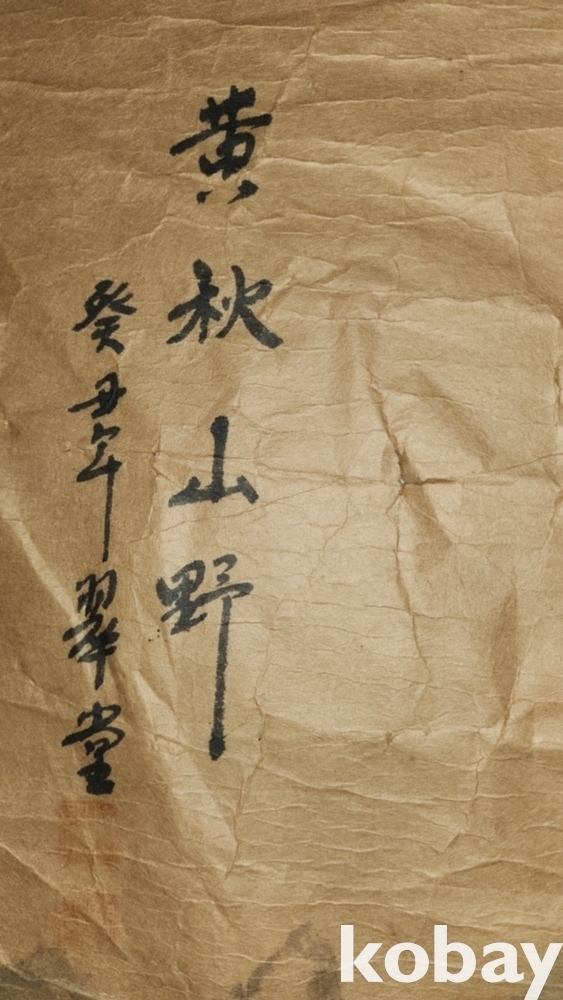 黄秋山野
癸丑年翠堂
kobay